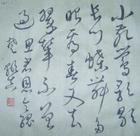 小苑鶯歌歇
长门蝶舞多
眼看春又去
翠辇不曾
过思君恩令狐
楚